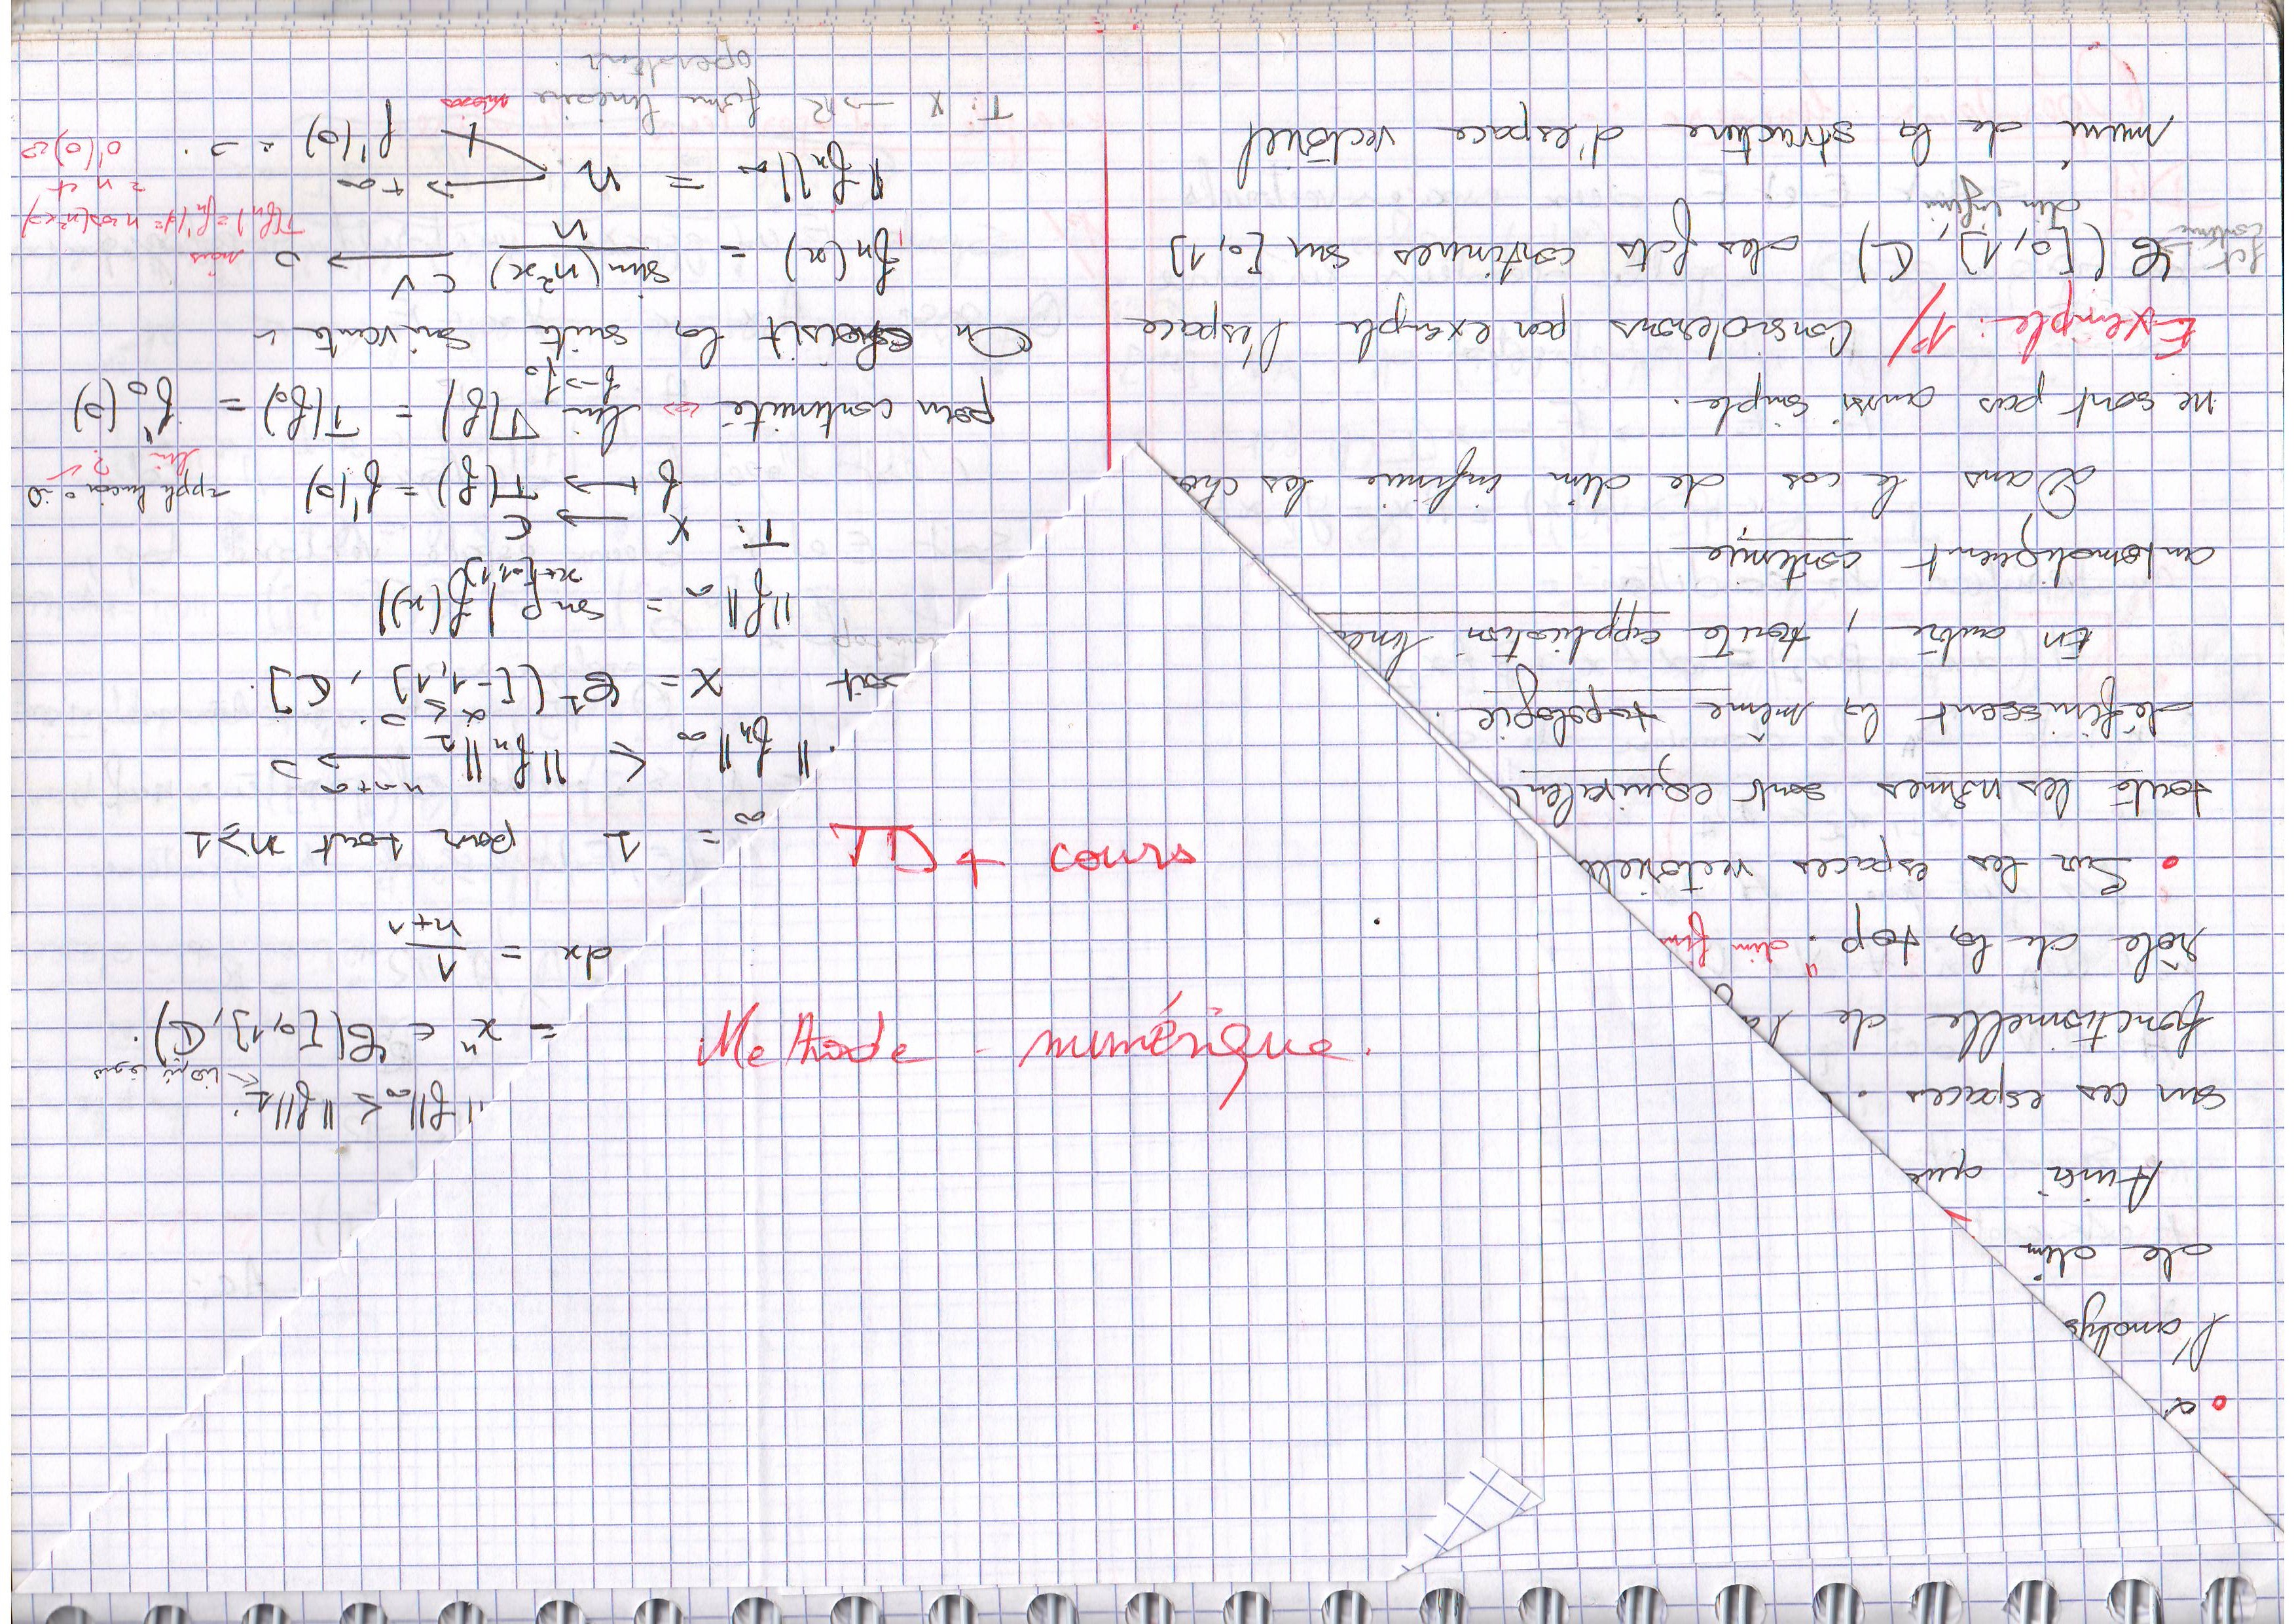 TD + cours
Methode - numérique.
l'analys
de dim
Ainsi que
sur ces espaces.
fonctionnelle de la
rôle de la top. "dim fini
Sur les espaces vectoriels
toute les normes sont equivalent
définissent la même topologie.
En autre, toute application linéa
automatiquent continue
Dans le cas de dim infinie les cho
ne sont pas aussi simple.
Exemple: 1°/ Considerons par exemple l'espace
fct continue
C([0,1], C) des fcts continues sur [0,1]
dim infinie
muni de la structure d'espace vectoriel
"f||∞ ≤ ||f||1
= x^n ∈ C([0,1], C).
dx = 1/(n+1)
∞ = 1 pour tout n≥1
||fn||∞ ≤ ||fn||1 → 0
n→+∞
soit X = C^1([-1,1], C)
||f||∞ = sup |f(x)|
x∈[-1,1]
T: X → C
f ↦ T(f) = f'(0)
pour continuité ⇔ lim T(f) = T(f0) = f0'(0)
f→f0
On choisit la suite suivante
fn(x) = sin(n²x)/n CV → 0
mais
T(fn) = fn'(0) = n cos(n²×0)
= n et
||fn||∞ = n → +∞
f'(0) = 0.
0'(0) = 0
T: X → R forme linéaire
operateur